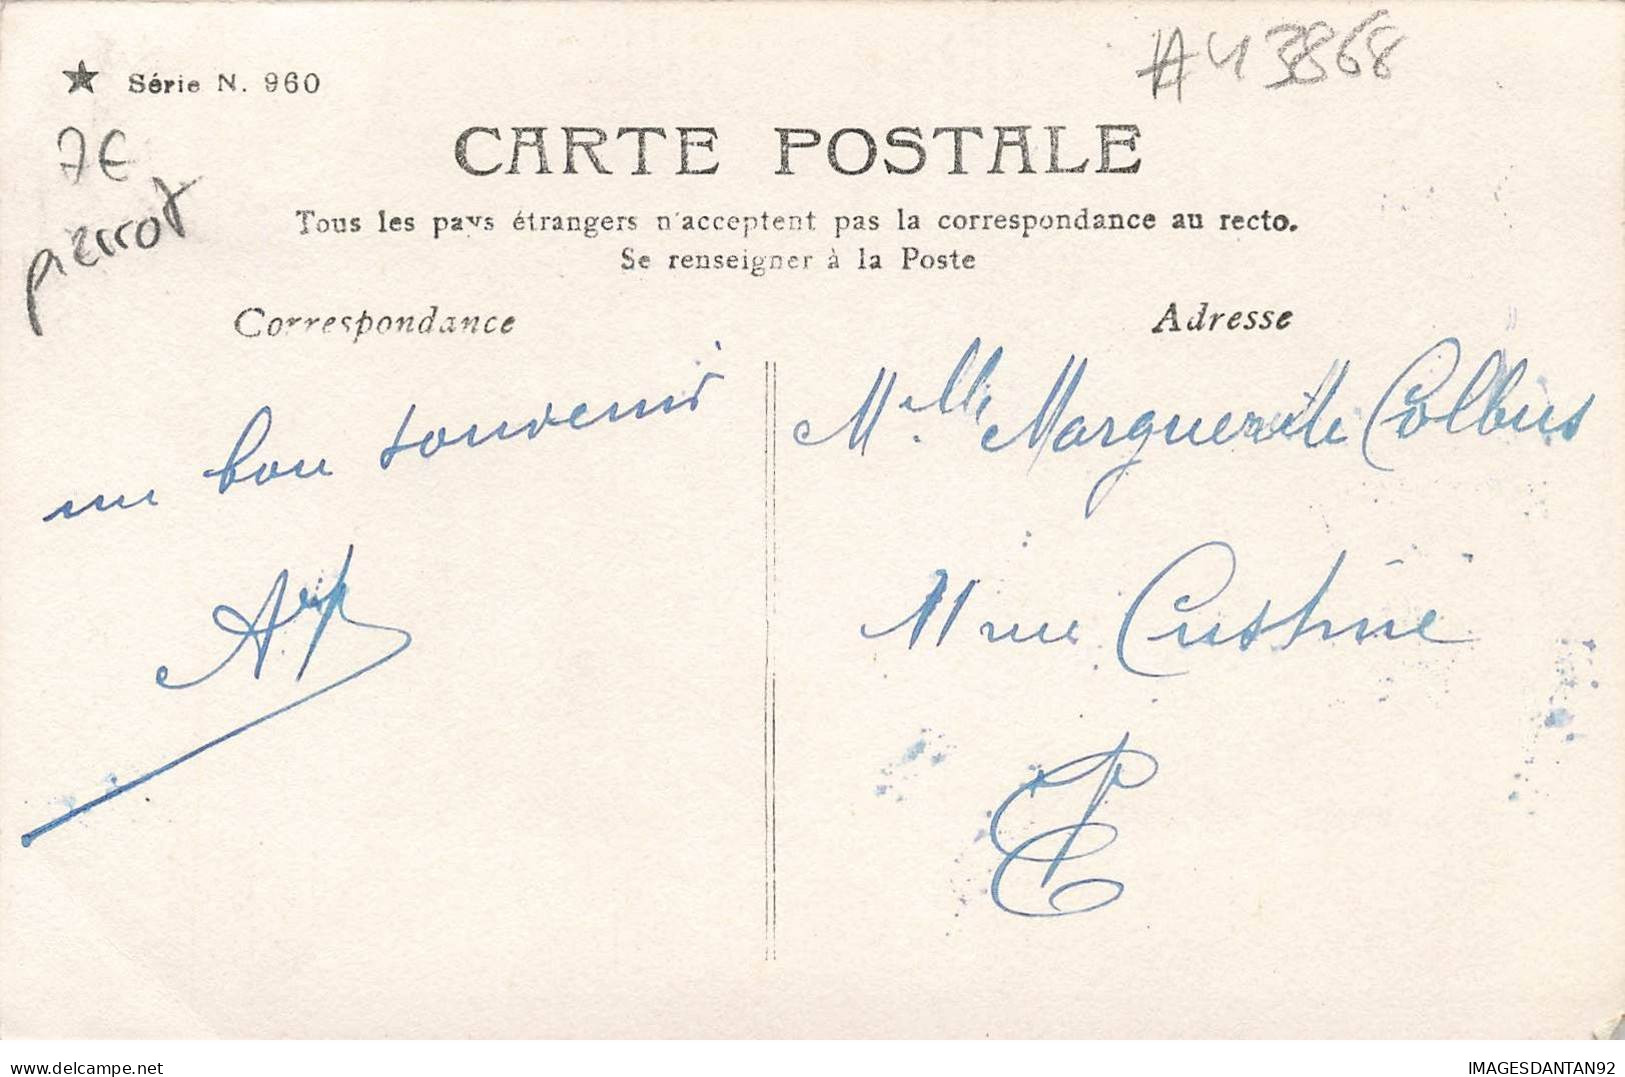 ★ Série N. 960
#43868
7€
pierrot
CARTE POSTALE
Tous les pays étrangers n'acceptent pas la correspondance au recto.
Se renseigner à la Poste
Correspondance
Adresse
un bon souvenir
Melle Marguerite Colbus
11 rue Custine
IMAGESDANTAN92